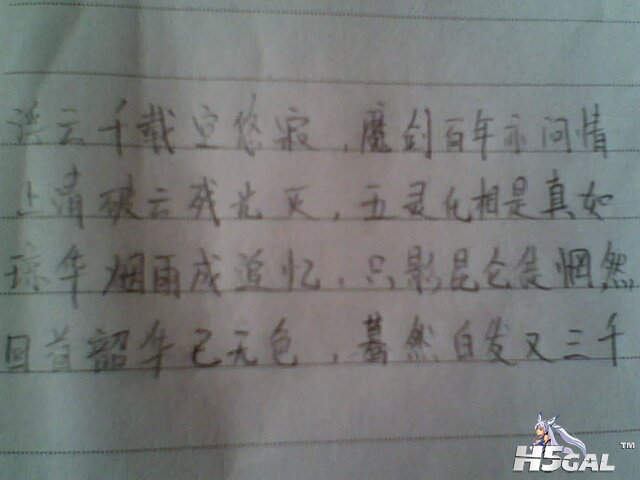 云千载空悠寂，魔剑百年亦问情
上清破云残光灭，五灵化相是真如
琼华烟雨成追忆，只影昆仑是惘然
回首韶华已无色，蓦然白发又三千
H5GAL™